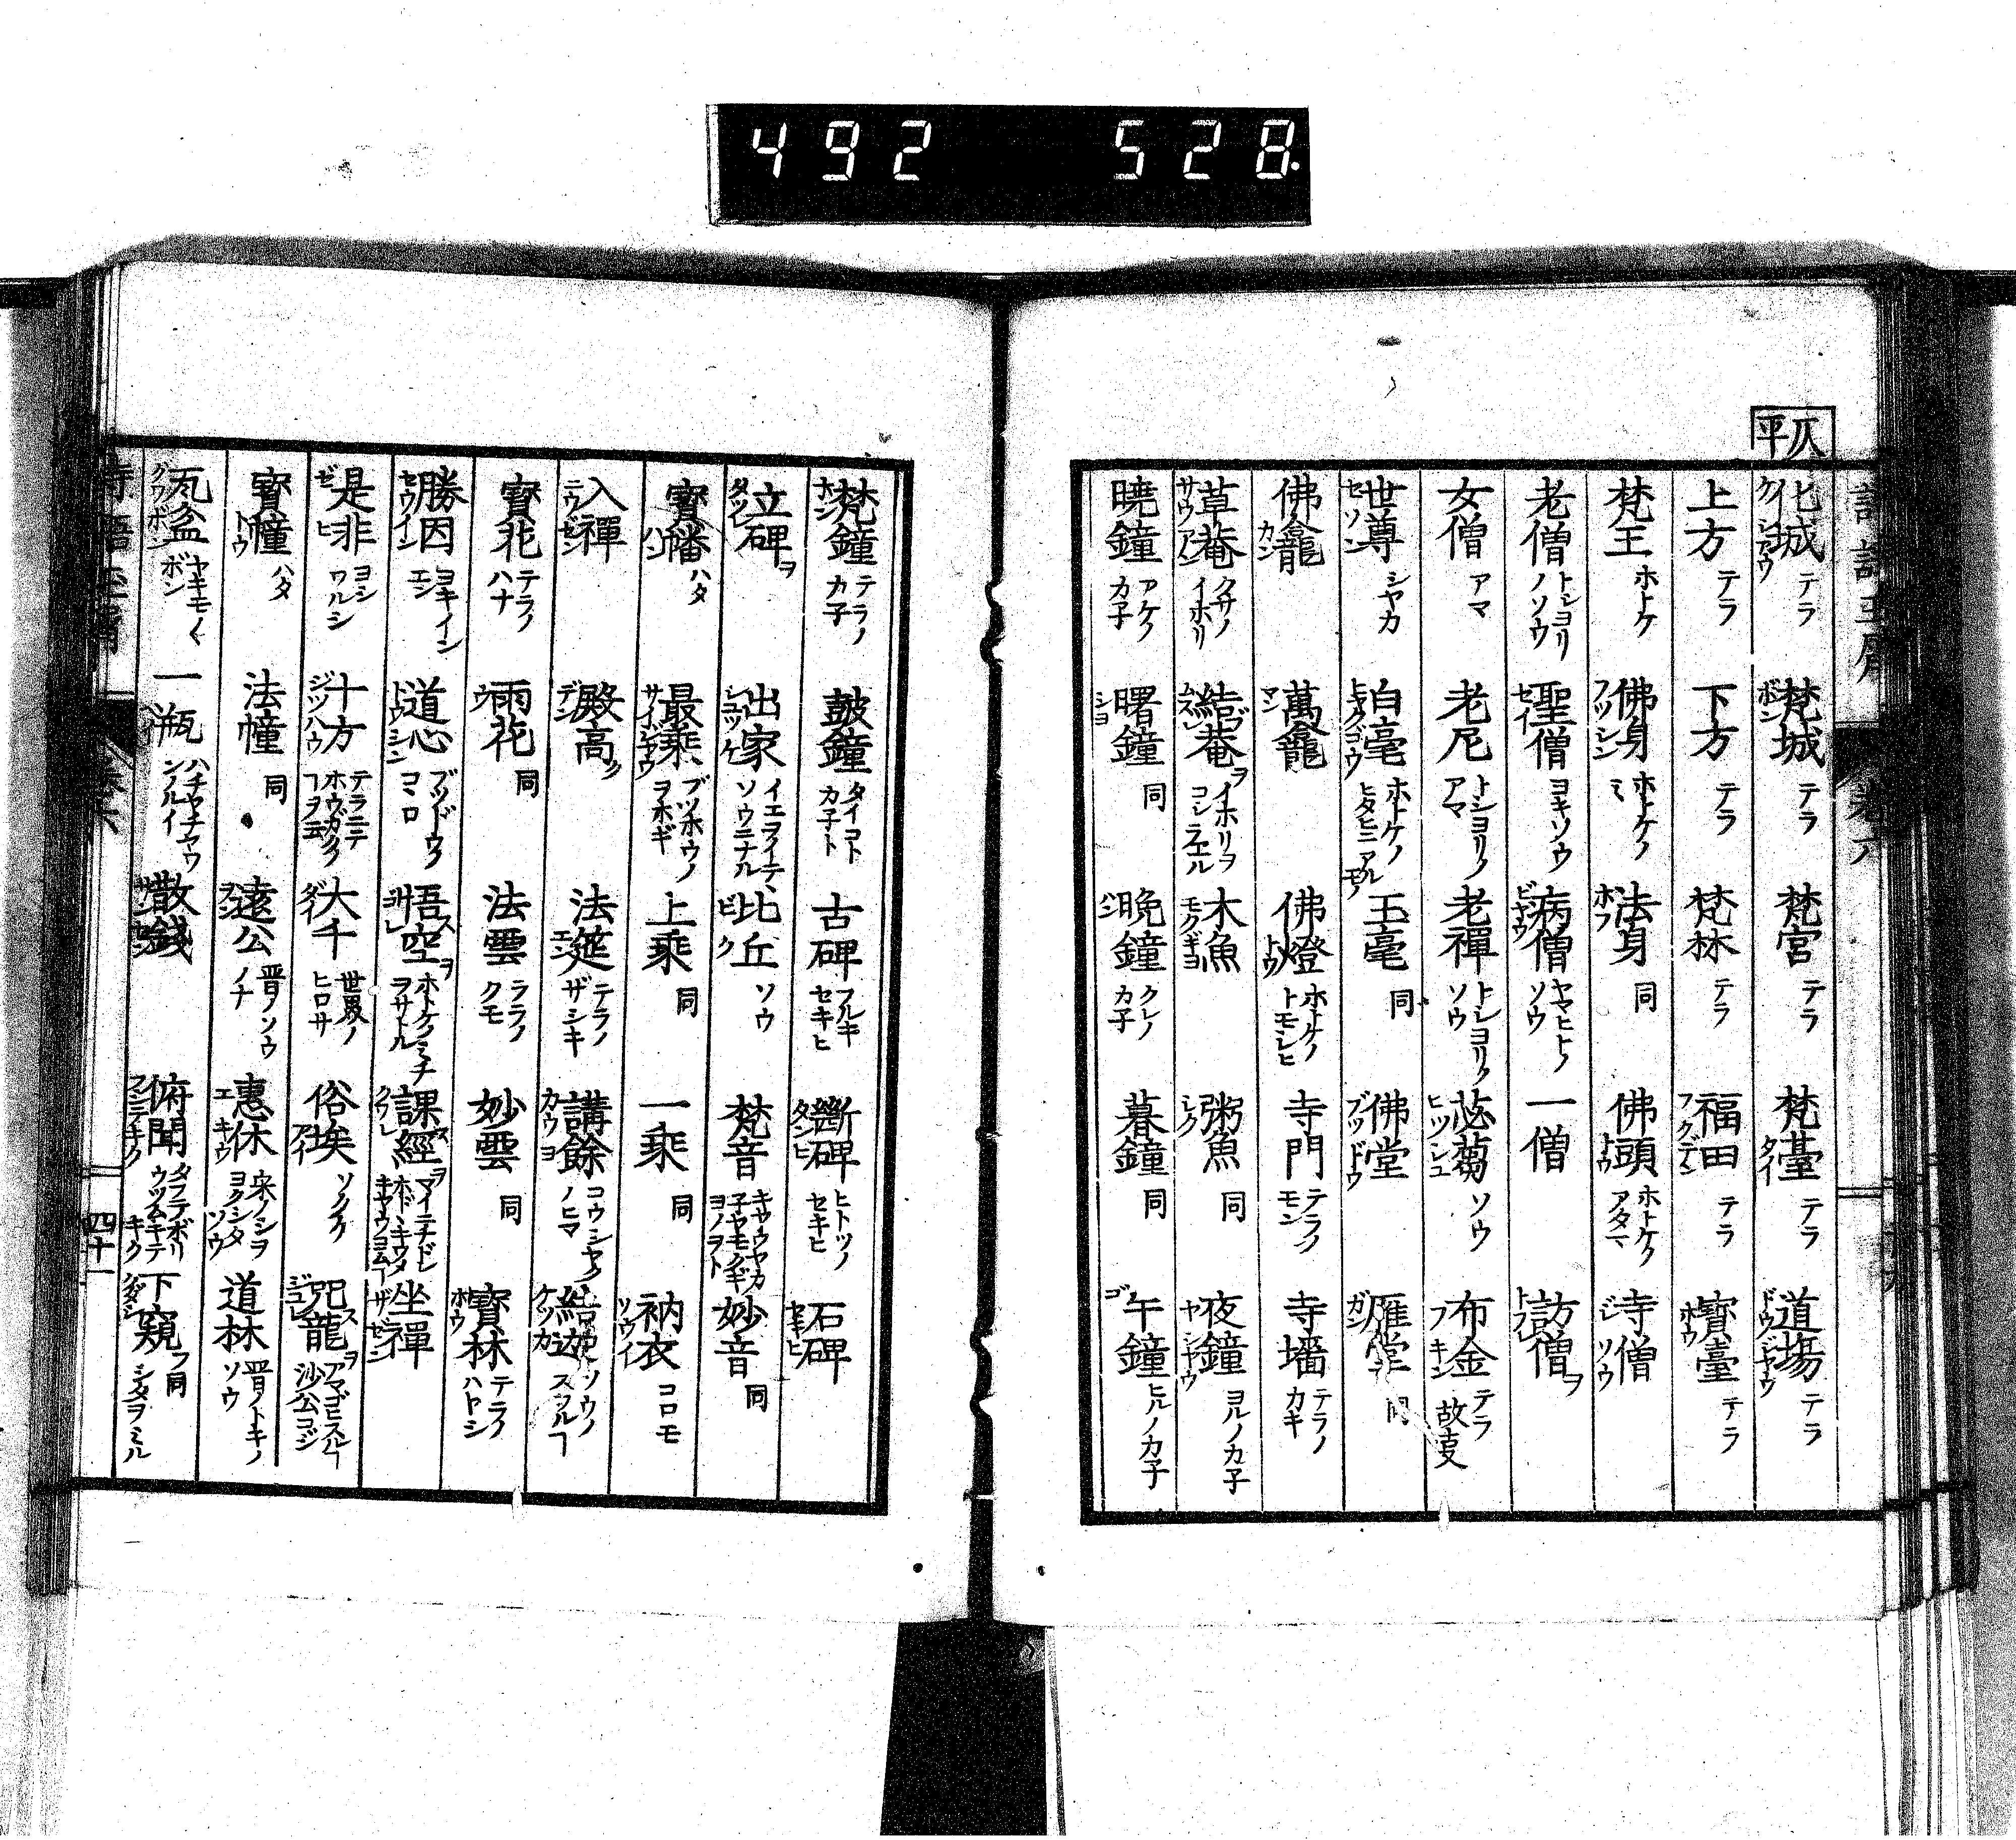 492 528.
仄平
化城 テラ 梵城 テラ 梵宮 テラ 梵臺 テラ 道場 テラ
上方 テラ 下方 テラ 梵林 テラ 福田 テラ 寳臺 テラ
梵王 ホトケ 佛身 ホトケノミ 法身 同 佛頭 ホトケノアタマ 寺僧
老僧 トシヨリノソウ 聖僧 ヨキソウ 病僧 ヤマヒトノソウ 一僧 訪僧ヲ
女僧 アマ 老尼 トシヨリノアマ 老禪 トシヨリノソウ 苾蒭 ソウ 布金 テラ故支
世尊 シヤカ 白毫 ホトケノヒタヒニアルモノ 玉毫 同 佛堂 雁堂 同
佛龕 萬龕 佛燈 ホトケノトモシヒ 寺門 テラノモン 寺墻 テラノカキ
草菴 クサノイホリ 結菴ヲ イホリヲコシラエル 木魚 粥魚 同 夜鐘 ヨルノカ子
曉鐘 アケノカ子 曙鐘 同 晩鐘 クレノカ子 暮鐘 同 午鐘 ヒルノカ子
梵鐘 テラノカ子 鼓鐘 タイコトカ子ト 古碑 フルキセキヒ 斷碑 ヒトツノセキヒ 石碑
立碑ヲ 出家 イエヲイテヽソウニナル 比丘 ソウ 梵音 妙音 同
寳幡 ハタ 最乘 ブツホウノヲホギ 上乘 同 一乘 同 衲衣 コロモ
入禪 殿高ク 法筵 テラノザシキ 講餘 コウシヤクノヒマ 結迦 ソウノスワルヿ
寳花 テラノハナ 雨花 同 法雲 テラノクモ 妙雲 同 寳林 テラノハヤシ
勝因 ヨキインエン 道心 ブツドウノコヽロ 悟空ヲ ホトケノミチヲサトル 課經ヲ 坐禪
是非 ヨシワルシ 十方 テラニテホウガクノヿヲ云 大千 世界ノヒロサ 俗埃 ゾクケ 咒龍ヲ アマゴヒスルヿ
寳幢 ハタ 法幢 同 遠公 晋ノソウノナ 惠休 宋ノシヲヨクシタソウ 道林 晋ノトキノソウ
瓦盆 一瓶 散錢 俯聞 ウツムキテキク 下窺フ 同 シタヲミル
四十一